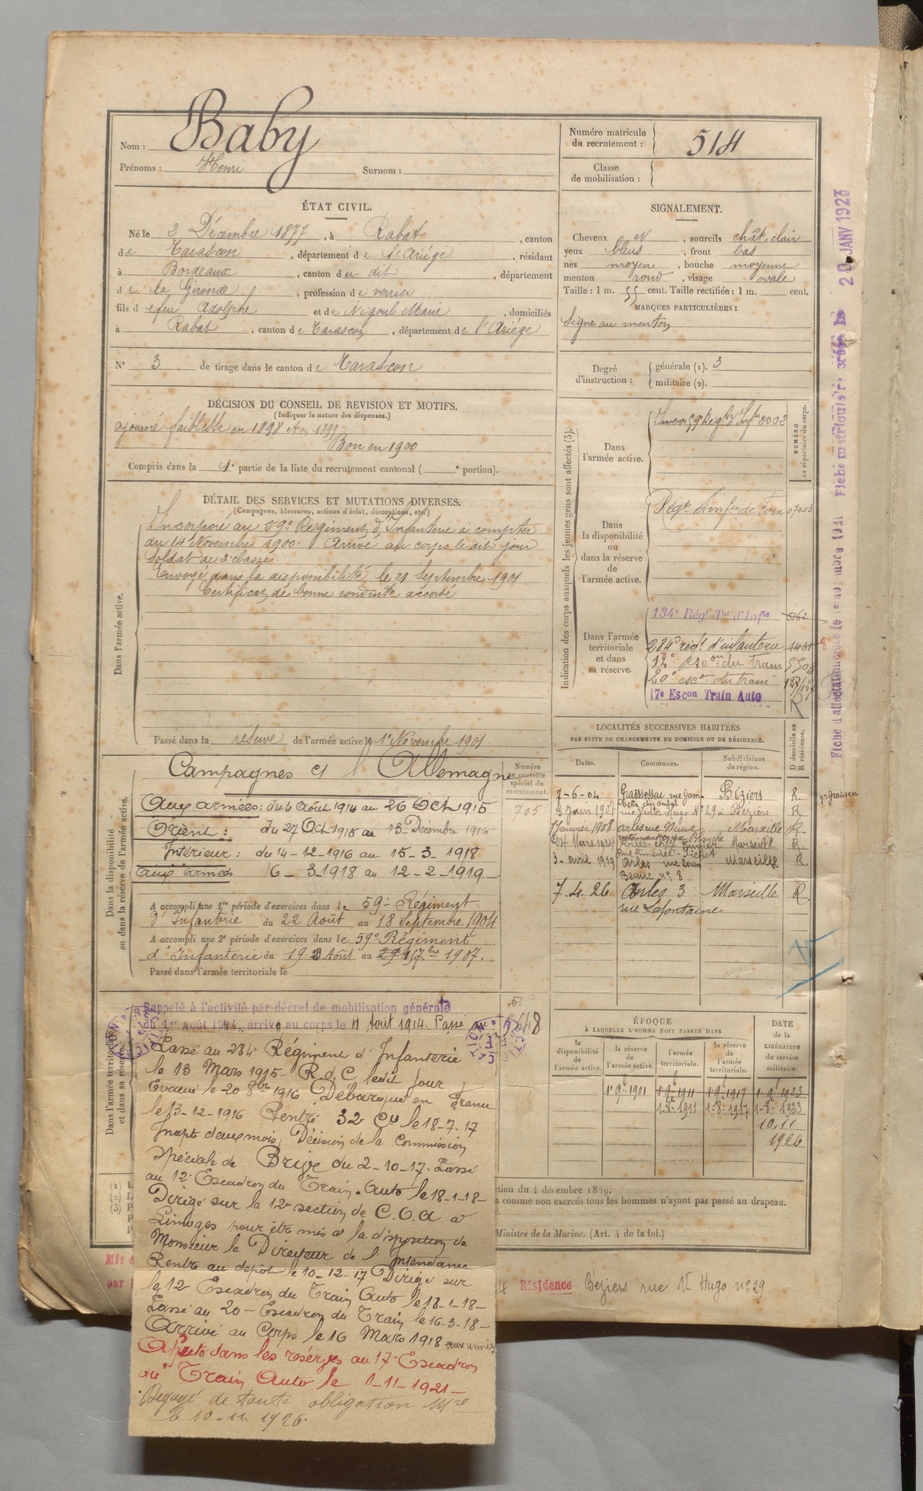 Nom : Baby
Prénoms : Henri Surnom :
Numéro matricule du recrutement : 514
Classe de mobilisation :
ÉTAT CIVIL.
Né le 3 Décembre 1877, à Rabat, canton
de Tarascon, département de l'Ariège, résidant
à Bordeaux, canton du dit, département
de la Gironde, profession de verrier
fils d efeu Adolphe et de Nigoul Marie, domiciliés
à Rabat, canton de Tarascon, département de l'Ariège
N° 3 de tirage dans le canton de Tarascon
DÉCISION DU CONSEIL DE REVISION ET MOTIFS.
(Indiquer la nature des dispenses.)
ajourné faiblesse en 1898 et 1899
Bon en 1900
Compris dans la 1e partie de la liste du recrutement cantonal ( e portion).
SIGNALEMENT.
Cheveux et, sourcils chât. clair
yeux bleus, front bas
nez moyen, bouche moyenne
menton rond, visage ovale
Taille : 1 m. 55 cent. Taille rectifiée : 1 m. cent.
MARQUES PARTICULIÈRES :
signe au menton
Degré d'instruction : générale (1). 3
militaire (2).
DÉTAIL DES SERVICES ET MUTATIONS DIVERSES.
(Campagnes, blessures, actions d'éclat, décorations, etc.)
Dans l'armée active.
Incorporé au 59e Régiment d'Infanterie à compter
du 14 Novembre 1900. Arrivé au corps le dit jour
soldat de 2e classe
Envoyé dans la disponibilité le 21 Septembre 1901
Certificat de bonne conduite accordé
Passé dans la réserve de l'armée active le 1er Novembre 1901
Indication des corps auxquels les jeunes gens sont affectés (3).
NUMÉRO au répertoire du corps.
Dans l'armée active.
59 Régt d'Infie
Dans la disponibilité ou dans la réserve de l'armée active.
Régt d'Infie de Foix
Dans l'armée territoriale et dans sa réserve.
134e Régt Ter d'Infie
284e régt d'infanterie
12e escon du train
20e escon du train
17e Escon Train Auto
Fiche matriculaire créée le 20 JANV 1923
LOCALITÉS SUCCESSIVES HABITÉES
PAR SUITE DE CHANGEMENTS DE DOMICILE OU DE RÉSIDENCE.
Dates. Communes. Subdivisions de région. D domicile ou R résidence.
7-6-04 Graissessac Béziers R
Juin 1907 Béziers R
Janvier 1908 Arles Marseille R
Mars 1914 Arles Marseille R
3 avril 1919 Arles Marseille R
7.4.26 Arles 3 rue Lafontaine Marseille R
Dans la disponibilité ou dans la réserve de l'armée active.
Numéro au contrôle spécial du recrutement.
705
Campagnes ct l'Allemagne
Aux armées : du 4 Août 1914 au 26 Oct 1915
Orient : du 27 Oct 1915 au 13 Décembre 1916
Intérieur : du 14-12-1916 au 15-3-1918
aux armées 16-3-1918 au 12-2-1919
A accompli une 1re période d'exercices dans le 59e Régiment
d'Infanterie du 22 Août au 18 Septembre 1904
A accompli une 2e période d'exercices dans le 59e Régiment
d'Infanterie du Août au 7bre 1907.
Passé dans l'armée territoriale le
Dans l'armée territoriale et dans sa réserve.
Rappelé à l'activité par décret de mobilisation générale
du 1er Août 1914, arrivé au corps le 4 Août 1914. Passé
Passé au 284e Régiment d'Infanterie
le 13 Mars 1915. R.d.C. ledit jour
Evacué le 20 8bre 1916 Débarqué en France
le 13-12-1916 Rentré le 18-7-17
Inapte deux mois, Décision de la Commission
spéciale de Brive du 2-10-17. Passé
au 12e Escadron du Train. Auto le 18-1-18-
Dirigé sur la 12e section de C.O.A à
Limoges pour être mis à la disposition de
Monsieur le Directeur de l'Intendance
Rentré au dépôt le 10-12-17 Dirigé sur
le 12e Escadron du Train Auto le 18-1-18-
Passé au 20e Escadron du Train le 16-3-18-
Arrivé au Corps le 16 Mars 1918 aux armées
Affecté dans les réserves au 17e Escadron
du Train Auto le 1-11-1921-
Dégagé de toute obligation Mre
le 10-11-1926.
ÉPOQUE
À LAQUELLE L'HOMME DOIT PASSER DANS
la disponibilité de l'armée active. la réserve de l'armée active. l'armée territoriale. la réserve de l'armée territoriale.
DATE de la LIBÉRATION du service militaire.
1926
du 4 décembre 1889.
comme non exercés tous les hommes n'ayant pas passé au drapeau.
Ministre de la Marine. (Art. 4 de la loi.)
Résidence Béziers rue Vr Hugo n° 29